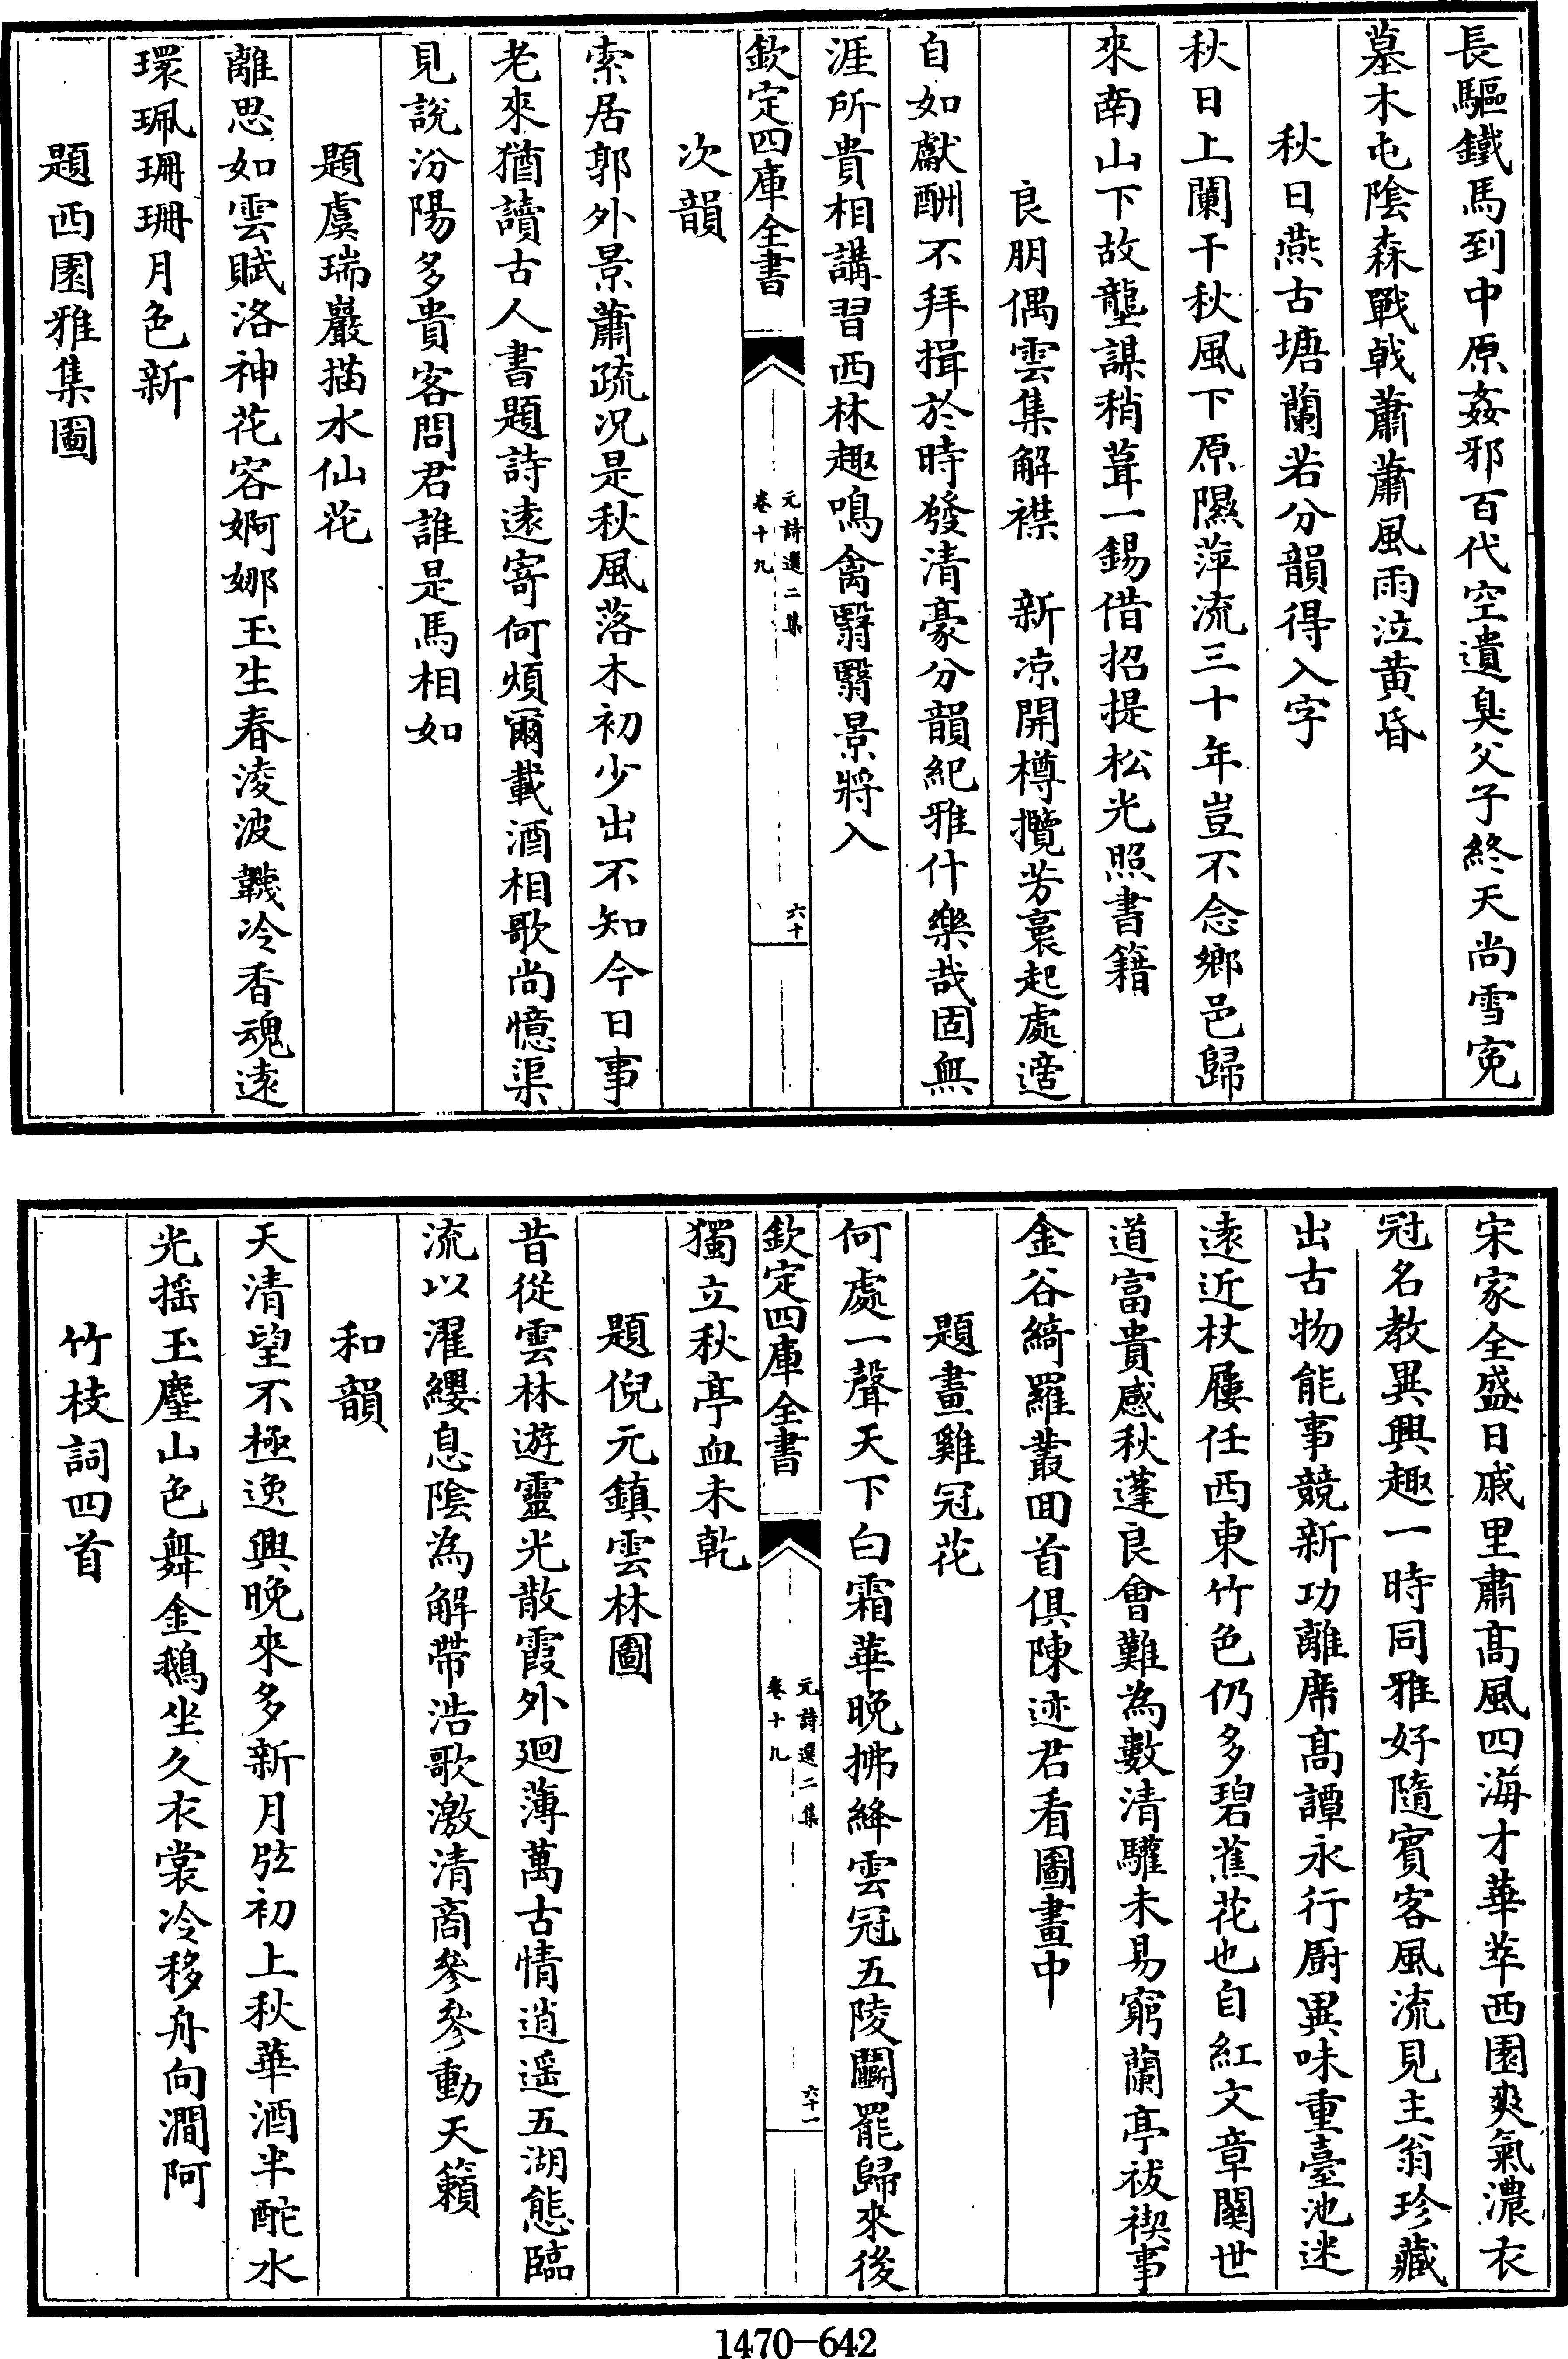 長驅鐵馬到中原姦邪百代空遺臭父子終天尚雪寃
墓木屯陰森戰㦸蕭蕭風雨泣黄昏
秋日燕古塘蘭若分韻得入字
秋日上闌干秋風下原隰萍流三十年豈不念鄉邑歸
來南山下故壟謀稍葺一錫借招提松光照書籍
良朋偶雲集解襟　新凉開樽攬芳裛起處適
自如獻酬不拜揖於時發清豪分韻紀雅什樂哉固無
涯所貴相講習西林趣鳴禽翳翳景將入
欽定四庫全書
元詩選二集
卷十九
六十
次韻
索居郭外景蕭疏况是秋風落木初少出不知今日事
老來猶讀古人書題詩逺寄何煩爾載酒相歌尚憶渠
見説汾陽多貴客問君誰是馬相如
題虞瑞巖描水仙花
離思如雲賦洛神花容婀娜玉生春淩波韈冷香魂逺
環珮珊珊月色新
題西園雅集圖
宋家全盛日戚里肅髙風四海才華萃西園爽氣濃衣
冠名教異興趣一時同雅好隨賓客風流見主翁珍藏
出古物能事競新功離席髙譚永行厨異味重臺池迷
逺近杖屨任西東竹色仍多碧蕉花也自紅文章關世
道富貴感秋蓬良會難為數清驩未易窮蘭亭祓禊事
金谷綺羅叢回首俱陳迹君看圖畫中
題畫雞冠花
何處一聲天下白霜華晩拂絳雲冠五陵鬬罷歸來後
欽定四庫全書
元詩選二集
卷十九
六十一
獨立秋亭血未乾
題倪元鎮雲林圖
昔從雲林遊靈光散霞外廻薄萬古情逍遥五湖態臨
流以濯纓息陰為解帶浩歌激清商參參動天籟
和韻
天清望不極逸興晩來多新月弦初上秋華酒半酡水
光揺玉塵山色舞金鵝坐久衣裳冷移舟向澗阿
竹枝詞四首
1470-642